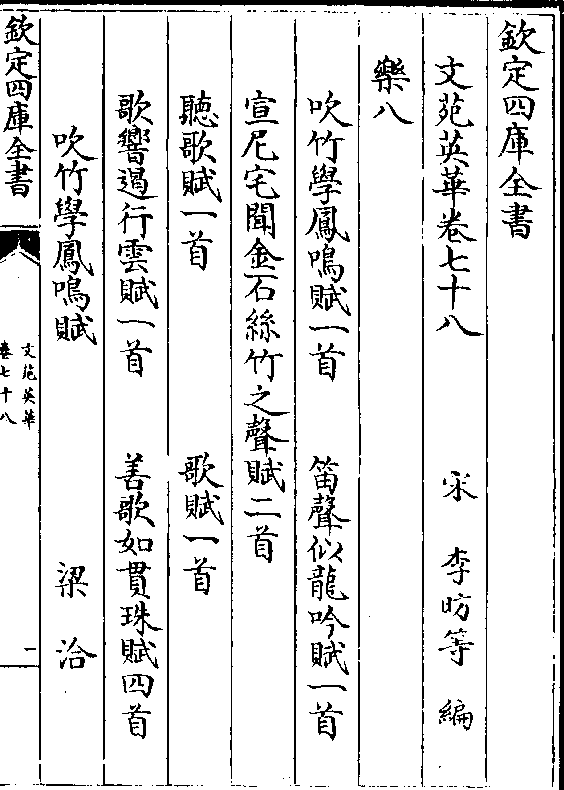 欽定四庫全書
文苑英華卷七十八 宋 李昉等 編
樂八
吹竹學鳳鳴賦一首 笛聲似龍吟賦一首
宣尼宅聞金石絲竹之聲賦二首
聽歌賦一首 歌賦一首
歌響遏行雲賦一首 善歌如貫珠賦四首
吹竹學鳳鳴賦 梁洽
欽定四庫全書
文苑英華
卷七十八
一